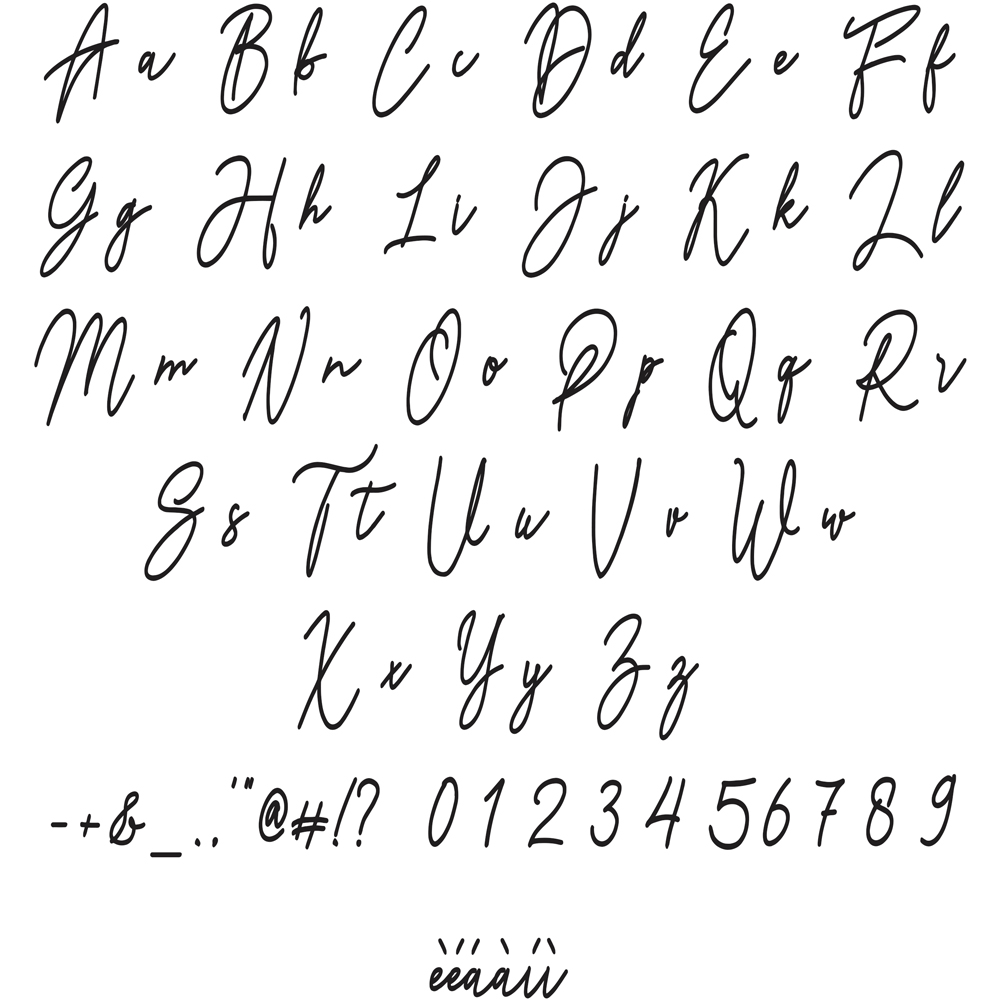 A a B b C c D d E e F f
G g H h I i J j K k L l
M m N n O o P p Q q R r
S s T t U u V v W w
X x Y y Z z
- + & _ . . ' " @ # ! ? 0 1 2 3 4 5 6 7 8 9